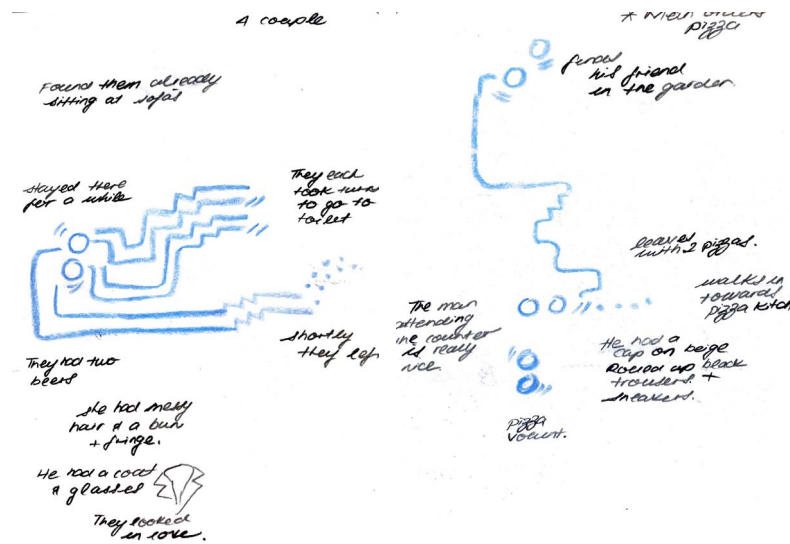 A couple
Found them already
sitting at sofás
stayed there
for a while
They each
took turns
to go to
toilet
shortly
they left
They had two
beers
she had messy
hair & a bun
+ fringe.
He had a coat
& glasses
They looked
in love.
* Man orders
pizza
finds
his friend
in the garden.
leaves
with 2 pizzas.
walks in
towards
pizza kitch
The man
attending
the counter
is really
nice.
He had a
cap on beige
Rolled up black
trousers +
sneakers.
pizza